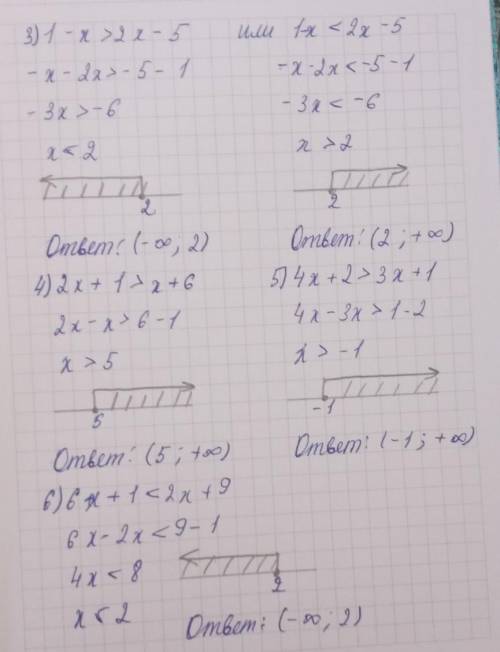 3) 1 - x > 2x - 5
-x - 2x > -5 - 1
-3x > -6
x < 2
2
Ответ: (-∞; 2)
или 1-x < 2x - 5
-x - 2x < -5 - 1
-3x < -6
x > 2
2
Ответ: (2; +∞)
4) 2x + 1 > x + 6
2x - x > 6 - 1
x > 5
5
Ответ: (5; +∞)
5) 4x + 2 > 3x + 1
4x - 3x > 1 - 2
x > -1
-1
Ответ: (-1; +∞)
6) 6x + 1 < 2x + 9
6x - 2x < 9 - 1
4x < 8
x < 2
2
Ответ: (-∞; 2)